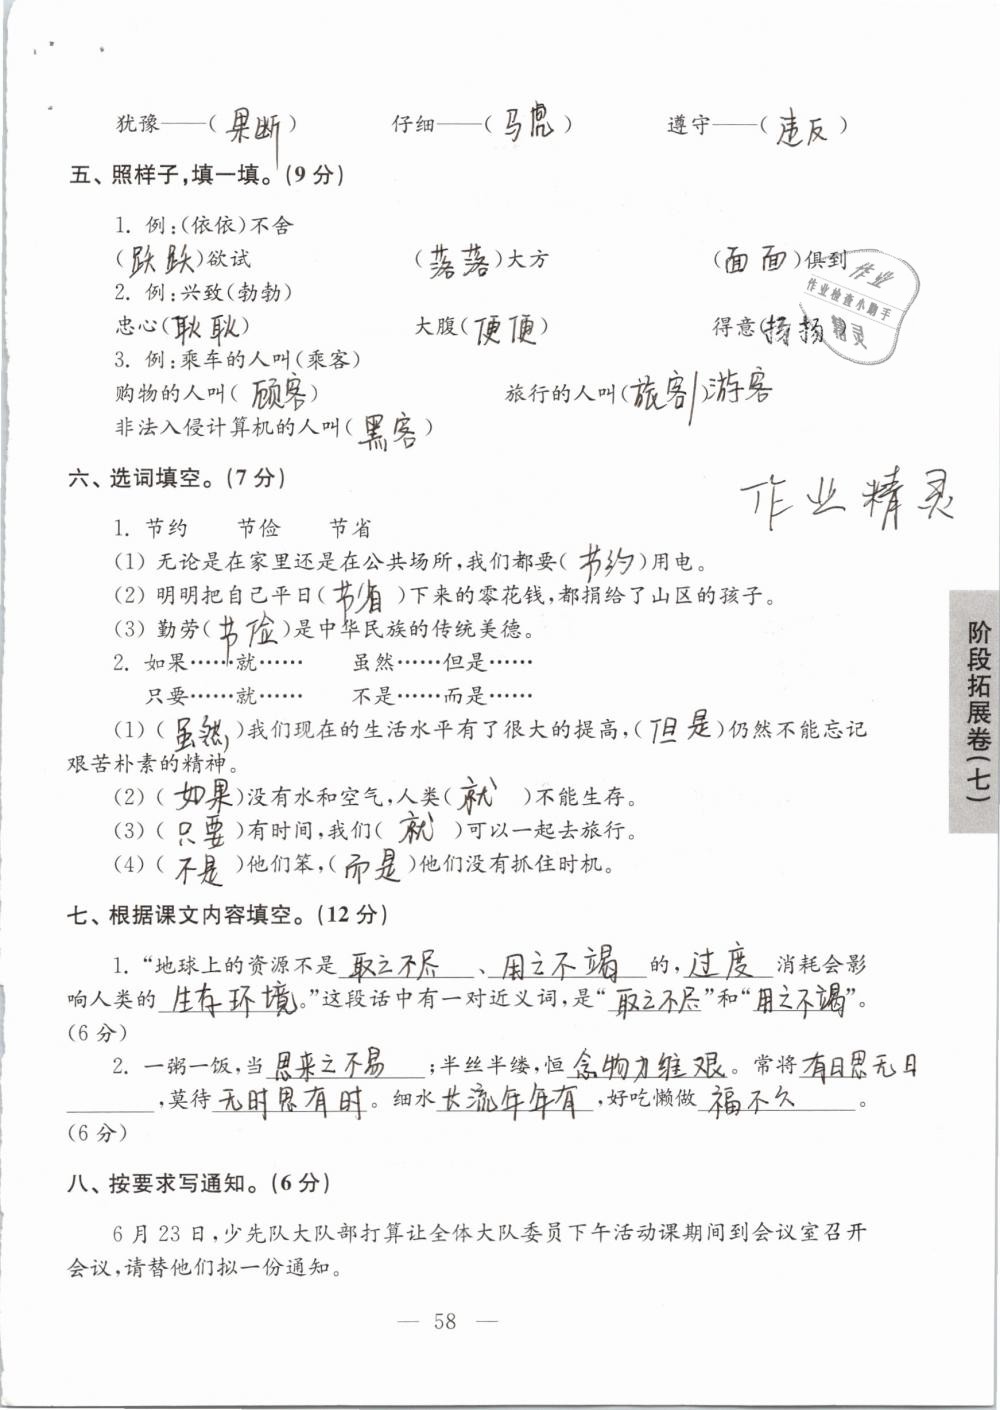 犹豫——(果断) 仔细——(马虎) 遵守——(违反)
五、照样子,填一填。(9分)
1. 例:(依依)不舍
(跃跃)欲试 (落落)大方 (面面)俱到
2. 例:兴致(勃勃)
忠心(耿耿) 大腹(便便) 得意(扬扬)
作业
作业检查小助手
精灵
3. 例:乘车的人叫(乘客)
购物的人叫(顾客) 旅行的人叫(旅客/)游客
非法入侵计算机的人叫(黑客)
六、选词填空。(7分)
作业精灵
1. 节约 节俭 节省
(1) 无论是在家里还是在公共场所,我们都要(节约)用电。
(2) 明明把自己平日(节省)下来的零花钱,都捐给了山区的孩子。
(3) 勤劳(节俭)是中华民族的传统美德。
2. 如果……就…… 虽然……但是……
只要……就…… 不是……而是……
(1) (虽然)我们现在的生活水平有了很大的提高,(但是)仍然不能忘记
艰苦朴素的精神。
(2) (如果)没有水和空气,人类(就)不能生存。
(3) (只要)有时间,我们(就)可以一起去旅行。
(4) (不是)他们笨,(而是)他们没有抓住时机。
七、根据课文内容填空。(12分)
1. “地球上的资源不是取之不尽、用之不竭的,过度消耗会影
响人类的生存环境。”这段话中有一对近义词,是“取之不尽”和“用之不竭”。
(6分)
2. 一粥一饭,当思来之不易;半丝半缕,恒念物力维艰。常将有日思无日
,莫待无时思有时。细水长流年年有,好吃懒做福不久。
(6分)
八、按要求写通知。(6分)
6月23日,少先队大队部打算让全体大队委员下午活动课期间到会议室召开
会议,请替他们拟一份通知。
— 58 —
阶段拓展卷(七)